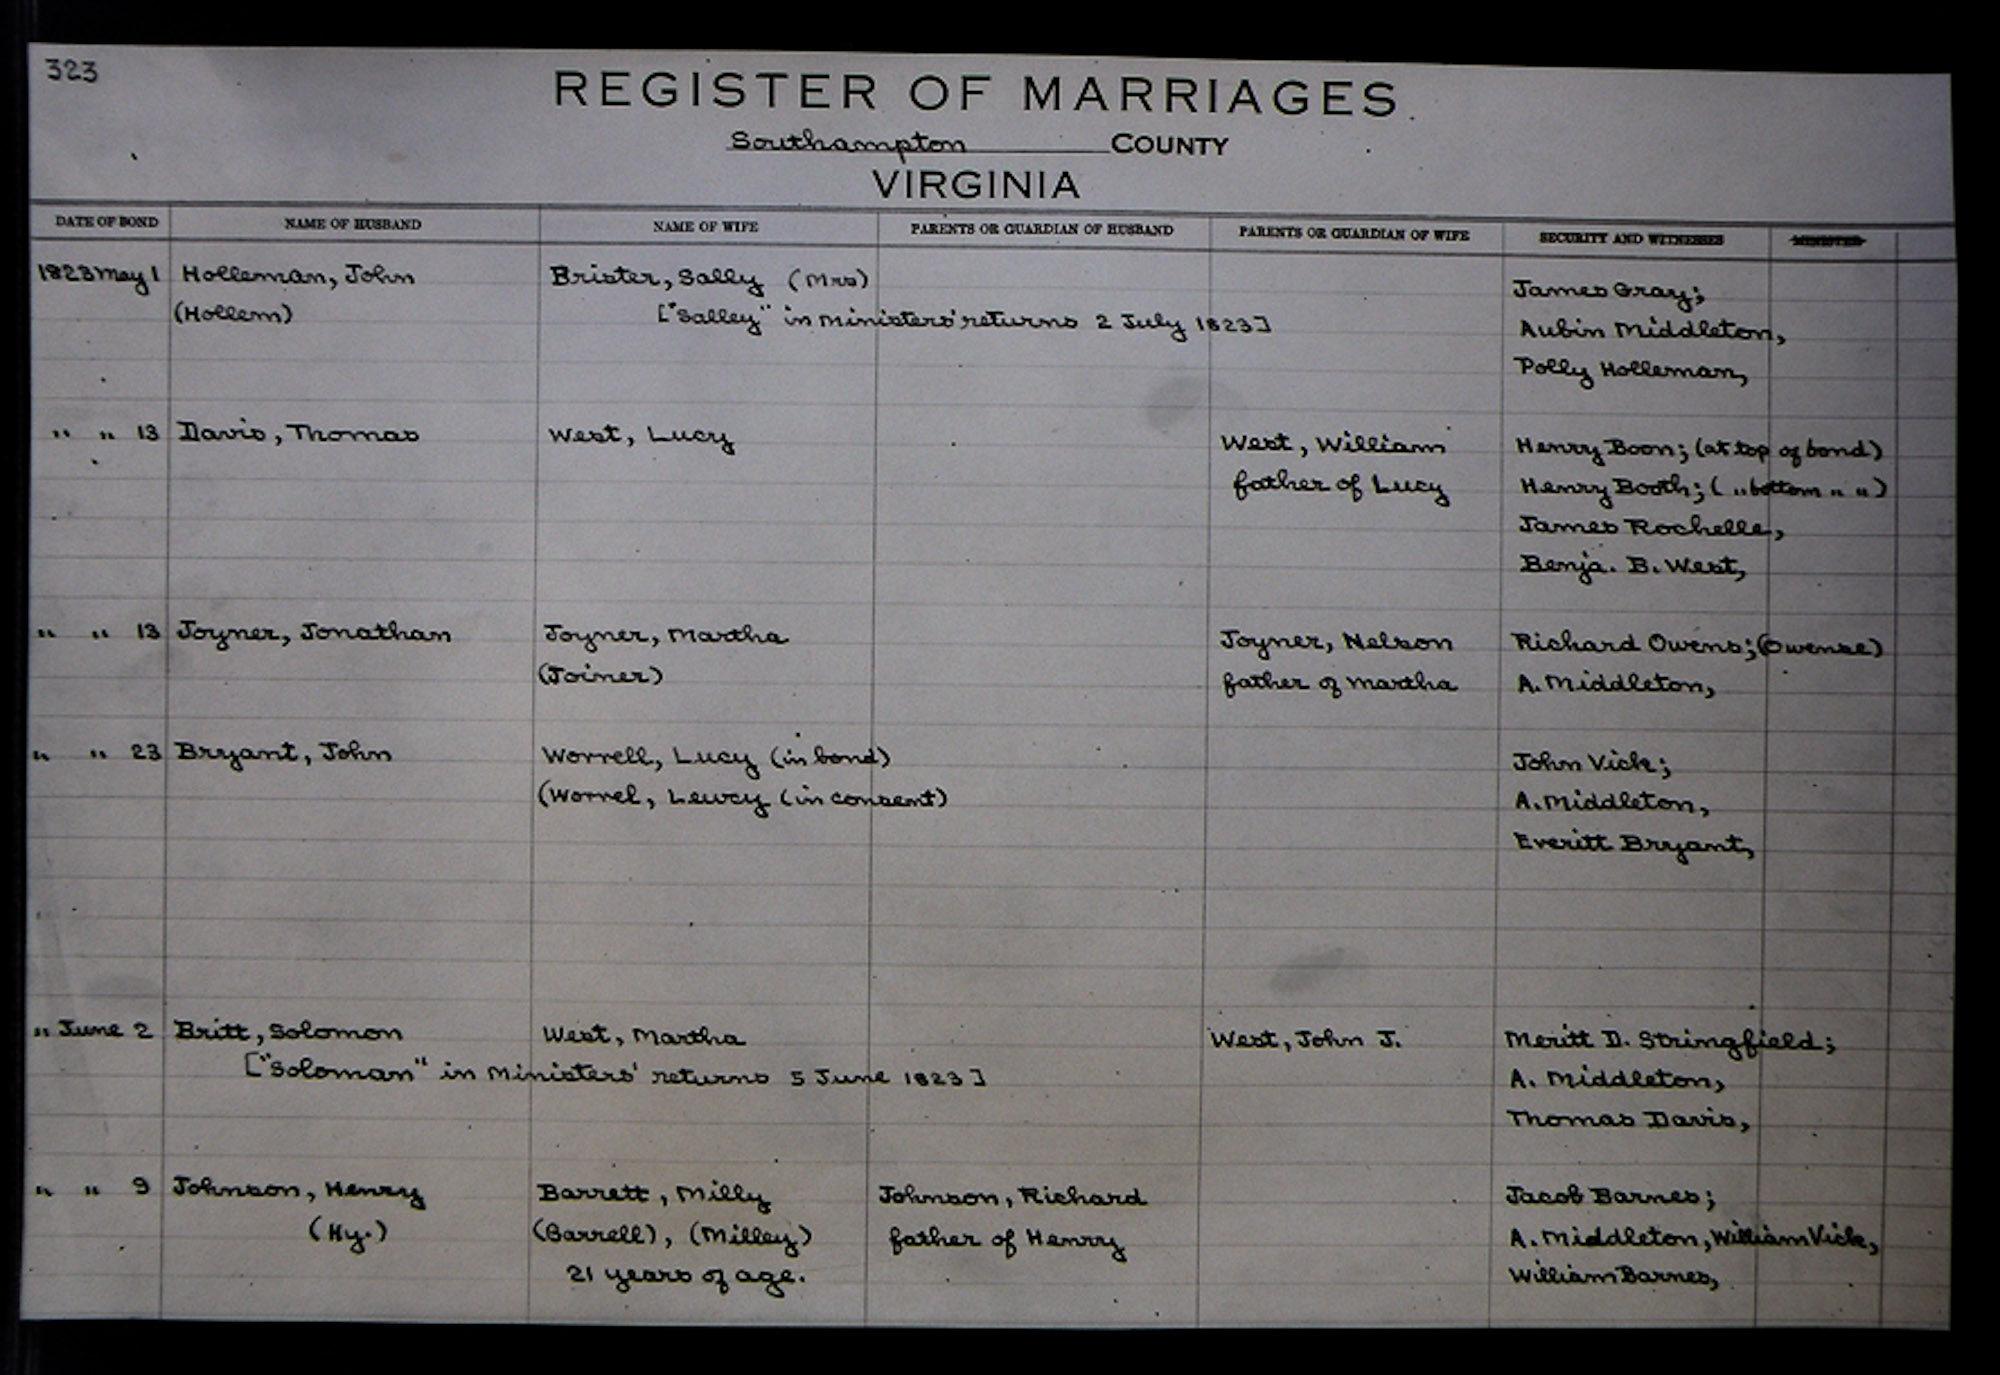 323
REGISTER OF MARRIAGES
Southampton COUNTY
VIRGINIA
DATE OF BOND NAME OF HUSBAND NAME OF WIFE PARENTS OR GUARDIAN OF HUSBAND PARENTS OR GUARDIAN OF WIFE SECURITY AND WITNESSES MINISTER
1823 May 1 Holleman, John Brister, Sally (Mrs) James Gray;
(Hollem) ["Salley" in Ministers' returns 2 July 1823] Aubin Middleton,
Polly Holleman,
" " 13 Davis, Thomas West, Lucy West, William Henry Boon; (at top of bond)
father of Lucy Henry Booth; ( " bottom " " )
James Rochelle,
Benja. B. West,
" " 13 Joyner, Jonathan Joyner, Martha Joyner, Nelson Richard Owens; (Owense)
(Joiner) father of Martha A. Middleton,
" " 23 Bryant, John Worrell, Lucy (in bond) John Vick;
(Worrel, Lewcy (in consent) A. Middleton,
Everitt Bryant,
" June 2 Britt, Solomon West, Martha West, John J. Meritt D. Stringfield;
["Soloman" in Ministers' returns 5 June 1823] A. Middleton,
Thomas Davis,
" " 9 Johnson, Henry Barrett, Milly Johnson, Richard Jacob Barnes;
(Hy.) (Barrell), (Milley) father of Henry A. Middleton, William Vick,
21 years of age. William Barnes,